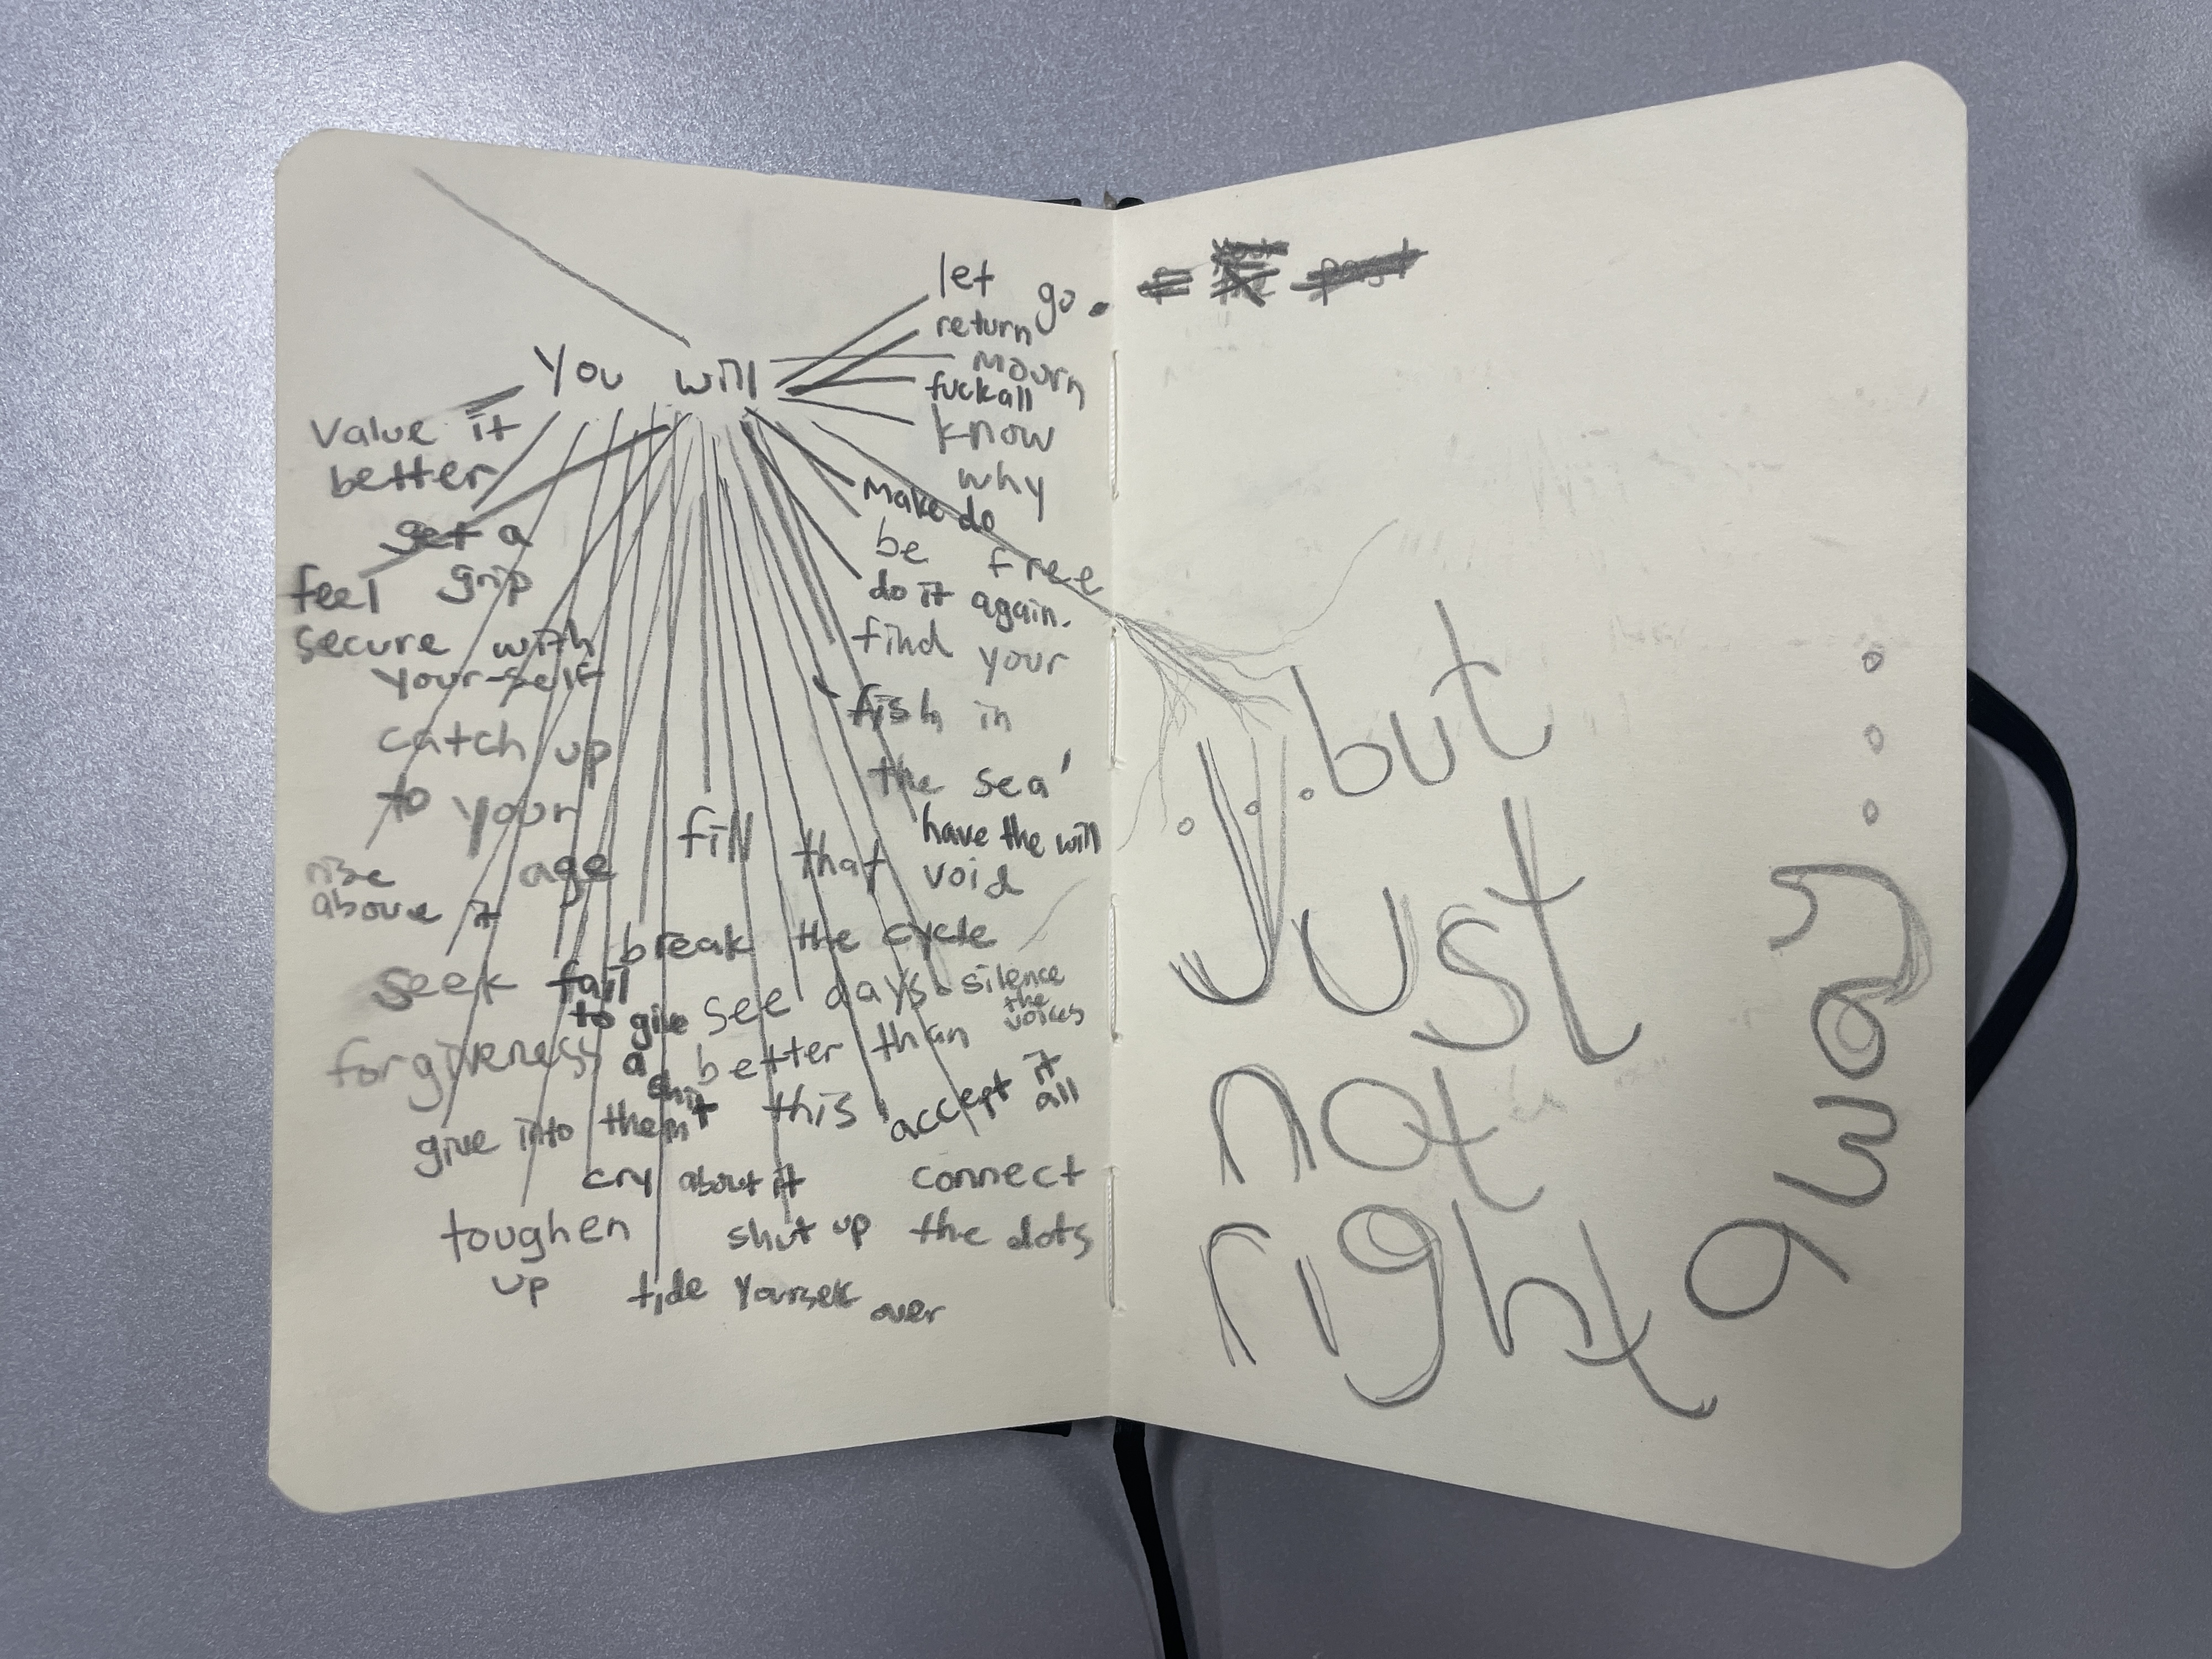 You will
let go.
return
mourn
fuckall
know
why
make do
be free
do it again.
find your
fish in
the sea'
have the will
fill that void
value it
better
get a
grip
feel
secure with
your-self
catch up
to your
age
rise
above it
break the cycle
seek
forgiveness
fail
to give
a
shit
see days
better than
this
silence
the
voices
accept it
all
give into them
cry about it
connect
the dots
toughen
up
shut up
tide yourself over
past
...but
Just
not
right
away...